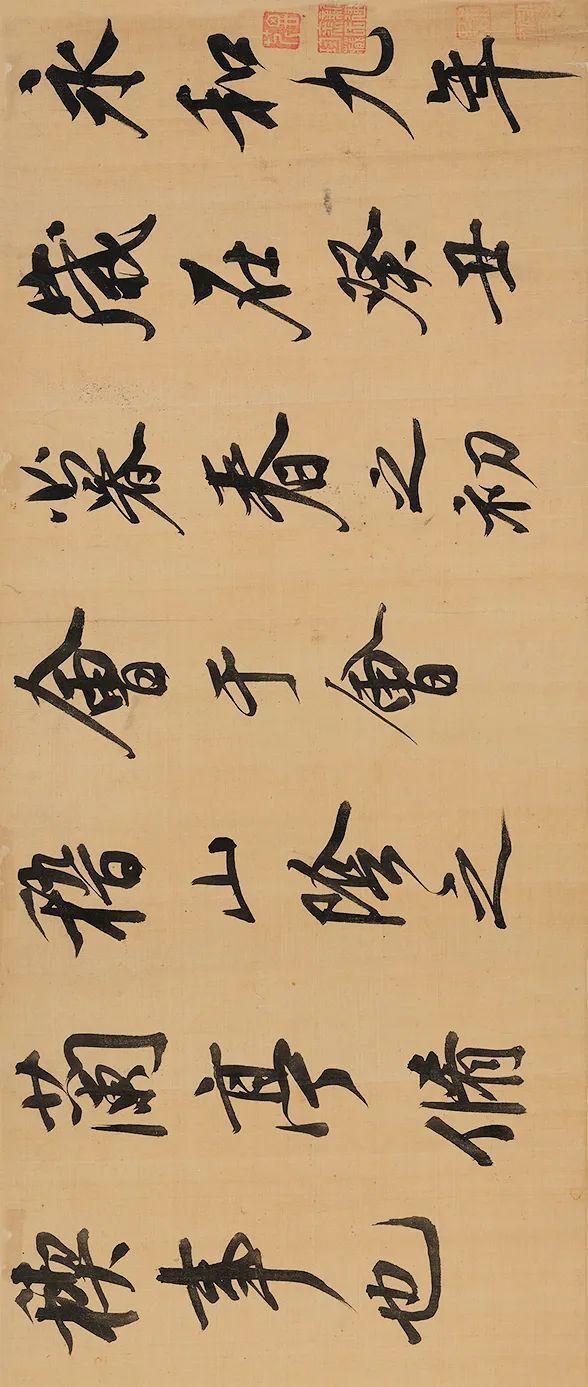 永和九年
歲在癸丑
暮春之初
會于會
稽山陰之
蘭亭脩
禊事也